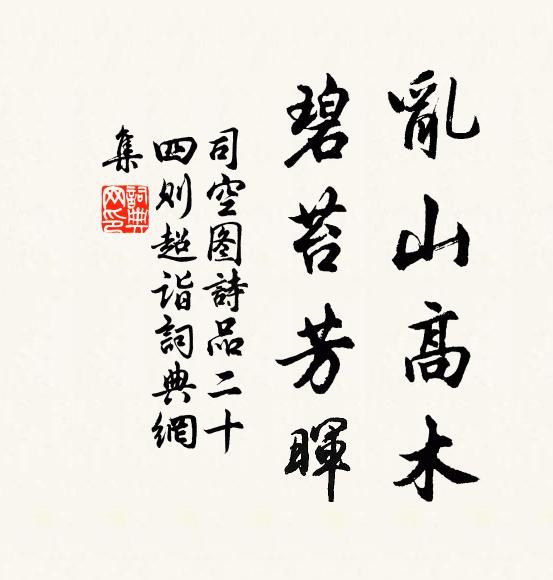 亂山高木
碧苔芳暉
司空圖詩品二十
四则超詣詞典網
集
詞典
网印